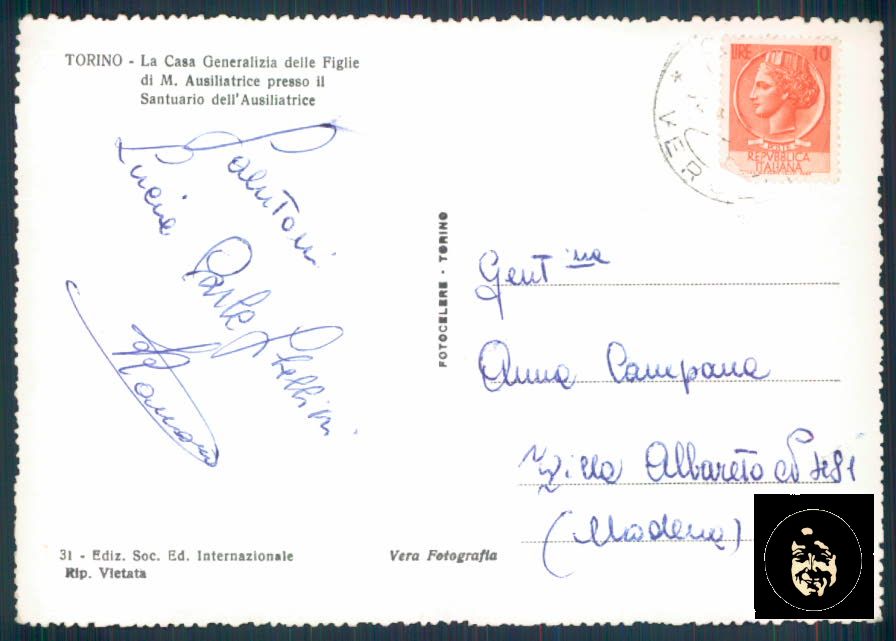 TORINO - La Casa Generalizia delle Figlie
di M. Ausiliatrice presso il
Santuario dell'Ausiliatrice
Salutoni
Lucia
Carla
Ghellini
FOTOCELERE - TORINO
LIRE 10
POSTE
REPVBBLICA
ITALIANA
VER
Gent ma
Anna Campana
Villa Albareto
(Modena)
31 - Ediz. Soc. Ed. Internazionale
Rip. Vietata
Vera Fotografia